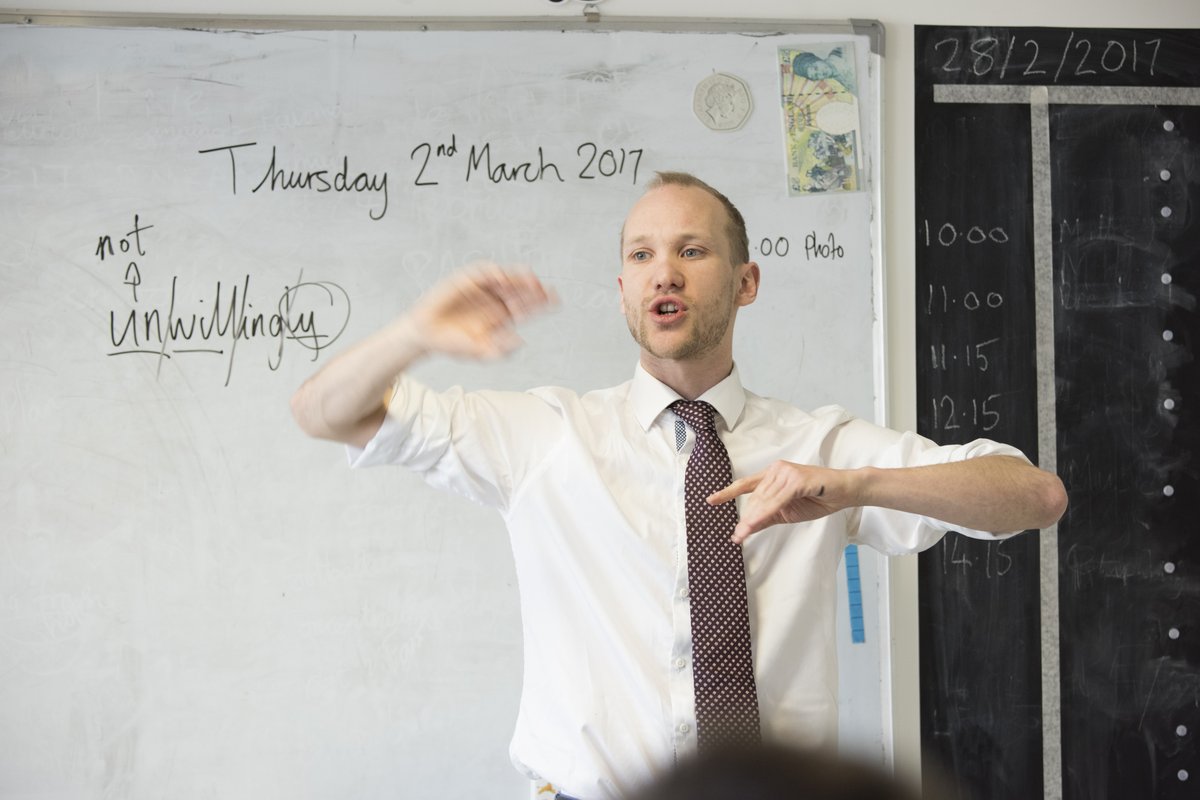 Thursday 2nd March 2017
not
unwillingly
.00 Photo
28/2/2017
10.00
11.00
11.15
12.15
14.15